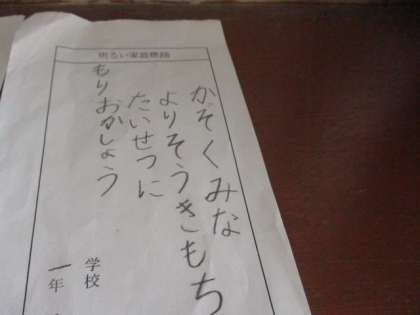 明るい家庭標語
かぞくみな
よりそうきもち
たいせつに
もりおかしょう
学校
一年